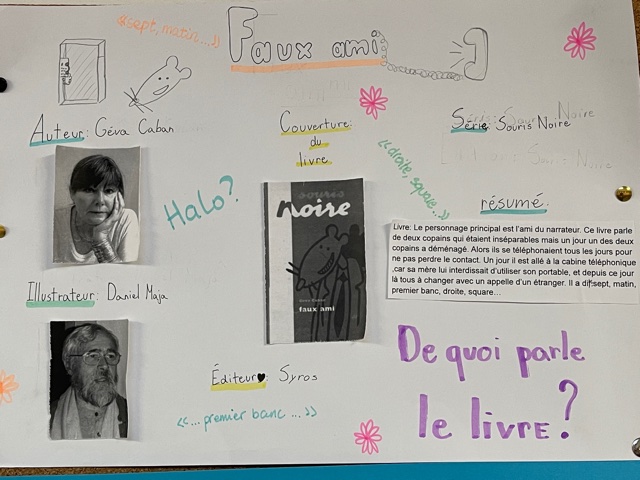 «sept, matin...»
Faux ami
Auteur: Géva Caban
Couverture
du
livre
Série: Souris Noire
Halo?
«droite, square...»
résumé
souris
noire
Géva Caban
faux ami
Livre: Le personnage principal est l'ami du narrateur. Ce livre parle
de deux copains qui étaient inséparables mais un jour un des deux
copains a déménagé. Alors ils se téléphonaient tous les jours pour
ne pas perdre le contact. Un jour il est allé à la cabine téléphonique
,car sa mère lui interdissait d'utiliser son portable, et depuis ce jour
là tous à changer avec un appelle d'un étranger. Il a dit:sept, matin,
premier banc, droite, square…
Illustrateur: Daniel Maja
Éditeur: Syros
«...premier banc...»
De quoi parle
le livre?